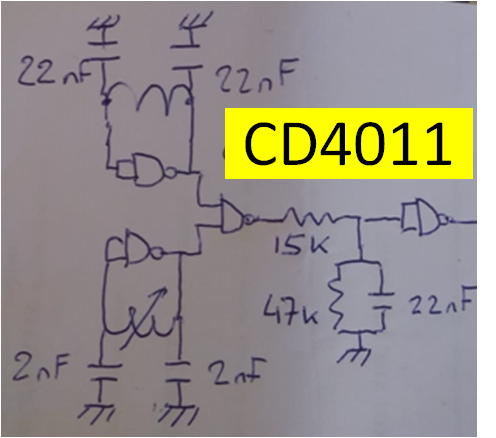 22nF 22nF
CD4011
15K
47K 22nF
2nF 2nF